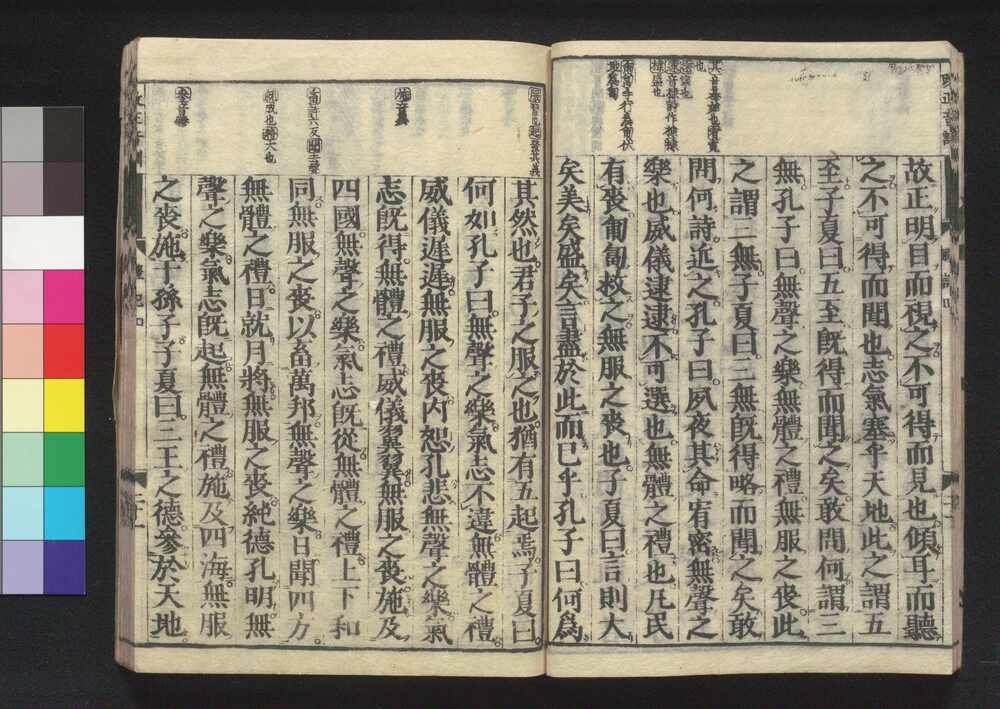 故正明目而視之不可得而見也傾耳而聽
之不可得而聞也志氣塞乎天地此之謂五
至子夏曰五至既得而聞之矣敢問何謂三
無孔子曰無聲之樂無體之禮無服之喪此
之謂三無子夏曰三無既得略而聞之矣敢
問何詩近之孔子曰夙夜其命宥密無聲之
樂也威儀逮逮不可選也無體之禮也凡民
有喪匍匐救之無服之喪也子夏曰言則大
矣美矣盛矣言盡於此而已乎孔子曰何爲
其然也君子之服之也猶有五起焉子夏曰
何如孔子曰無聲之樂氣志不違無體之禮
威儀遲遲無服之喪内恕孔悲無聲之樂氣
志既得無體之禮威儀翼翼無服之喪施及
四國無聲之樂氣志既從無體之禮上下和
同無服之喪以畜萬邦無聲之樂日聞四方
無體之禮日就月將無服之喪純德孔明無
聲之樂氣志既起無體之禮施及四海無服
之喪施于孫子子夏曰三王之德參於天地